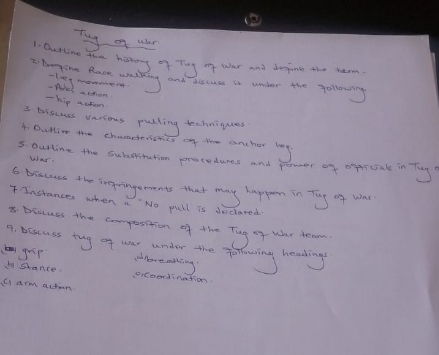 Tug of war
1. Outline the history of Tug of War and define the term.
2. Define Race walking and discuss is under the following
- Leg movement.
- Arm action
- hip action.
3. Discuss various pulling techniques.
4. Outline the characteristics of the anchor leg.
5. Outline the substitution procedures and power of officials in Tug
War.
6. Discuss the infringements that may happen in Tug of War.
7. Instances when a "No pull is declared.
8. Discuss the composition of the Tug of War team.
9. Discuss tug of war under the following headings.
a) grip
d) breathing.
b) Stance.
e) Coordination.
c) arm action.